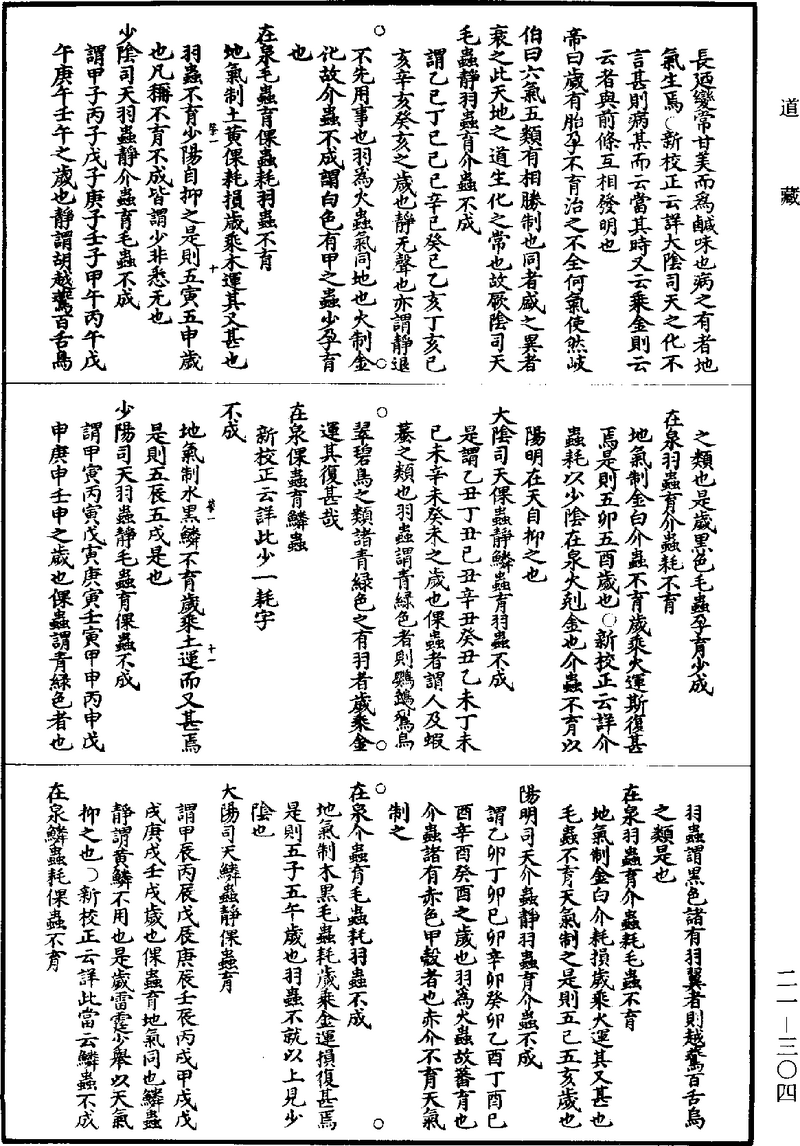 道藏
長迺變常甘美而為鹹味也病之有者地
氣生焉○新校正云詳大陰司天之化不
言甚則病某而云當其時又云乘金則云
云者與前條互相發明也
帝曰歲有胎孕不育治之不全何氣使然岐
伯曰六氣五類有相勝制也同者盛之異者
衰之此天地之道生化之常也故厥陰司天
毛蟲靜羽蟲育介蟲不成
謂乙巳丁巳己巳辛巳癸巳乙亥丁亥己
亥辛亥癸亥之歲也靜无聲也亦謂靜退
不先用事也羽為火蟲氣同地也火制金
化故介蟲不成謂白色有甲之蟲少孕育
也
在泉毛蟲育倮蟲耗羽蟲不育
地氣制土黃倮耗損歲乘木運其又甚也
羽蟲不育少陽自抑之是則五寅五申歲
也凡稱不育不成皆謂少非悉无也
少陰司天羽蟲靜介蟲育毛蟲不成
謂甲子丙子戊子庚子壬子甲午丙午戊
午庚午壬午之歲也靜謂胡越鷰百舌鳥
之類也是歲黑色毛蟲孕育少成
在泉羽蟲育介蟲耗不育
地氣制金白介蟲不育歲乘火運斯復甚
焉是則五卯五酉歲也○新校正云詳介
蟲耗以少陰在泉火剋金也介蟲不育以
陽明在天自抑之也
大陰司天倮蟲靜鱗蟲育羽蟲不成
是謂乙丑丁丑己丑辛丑癸丑乙未丁未
己未辛未癸未之歲也倮蟲者謂人及蝦
蟇之類也羽蟲謂青綠色者則鸚鵡鴷鳥
翠碧鳥之類諸青綠色之有羽者歲乘金
運其復甚哉
在泉倮蟲育鱗蟲
新校正云詳此少一耗字
不成
地氣制水黑鱗不育歲乘土運而又甚焉
是則五辰五戌是也
少陽司天羽蟲靜毛蟲育倮蟲不成
謂甲寅丙寅戊寅庚寅壬寅甲申丙申戊
申庚申壬申之歲也倮蟲謂青綠色者也
羽蟲謂黑色諸有羽翼者則越鷰百舌鳥
之類是也
在泉羽蟲育介蟲耗毛蟲不育
地氣制金白介耗損歲乘火運其又甚也
毛蟲不育天氣制之是則五巳五亥歲也
陽明司天介蟲靜羽蟲育介蟲不成
謂乙卯丁卯己卯辛卯癸卯乙酉丁酉己
酉辛酉癸酉之歲也羽為火蟲故蕃育也
介蟲諸有赤色甲殼者也赤介不育天氣
制之
在泉介蟲育毛蟲耗羽蟲不成
地氣制木黑毛蟲耗歲乘金運損復甚焉
是則五子五午歲也羽蟲不就以上見少
陰也
大陽司天鱗蟲靜倮蟲育
謂甲辰丙辰戊辰庚辰壬辰丙戌甲戌戊
戌庚戌壬戌歲也倮蟲育地氣同也鱗蟲
靜謂黃鱗不用也是歲雷霆少舉以天氣
抑之也○新校正云詳此當云鱗蟲不成
在泉鱗蟲耗倮蟲不育
二一—三〇四